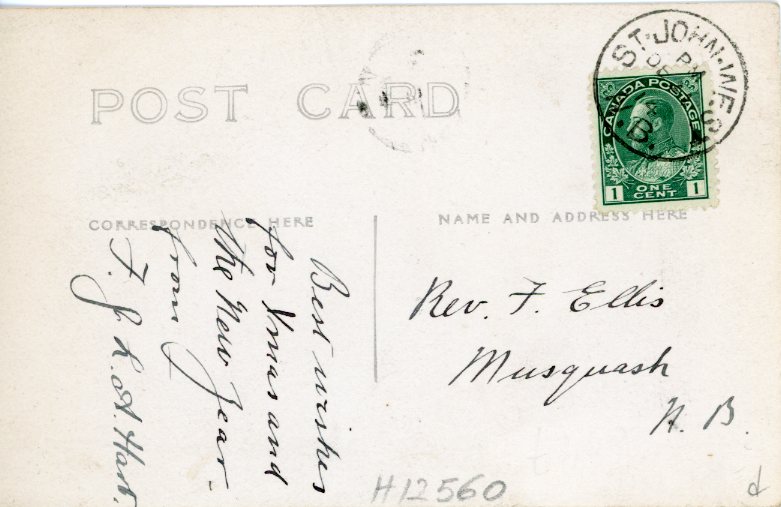 POST CARD
ST. JOHN. WEST
PM
DE
N.B.
CANADA POSTAGE
1 ONE CENT 1
CORRESPONDENCE HERE
NAME AND ADDRESS HERE
Best wishes
for Xmas and
the New Year.
from
F. J. L. A. Hart.
Rev. F. Ellis
Musquash
N. B.
H12560
d